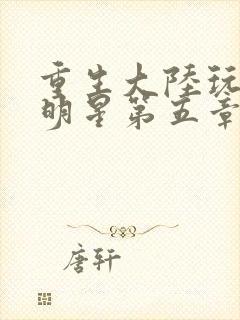 重生大陸玩
明星第五章
唐轩